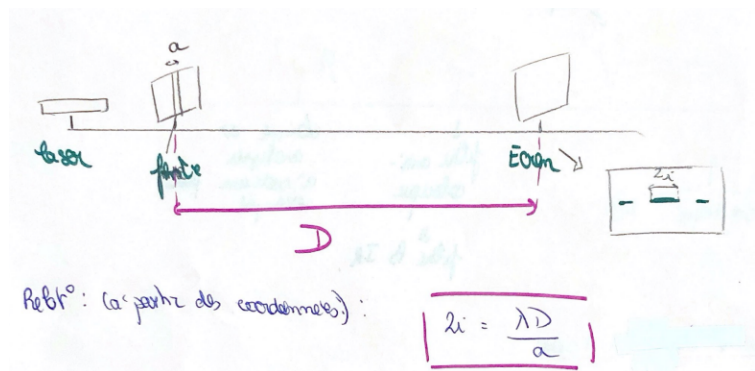 a
laser
fente
Ecran
2i
D
Relat°: (à partir des coordonnées):
2i = λD / a